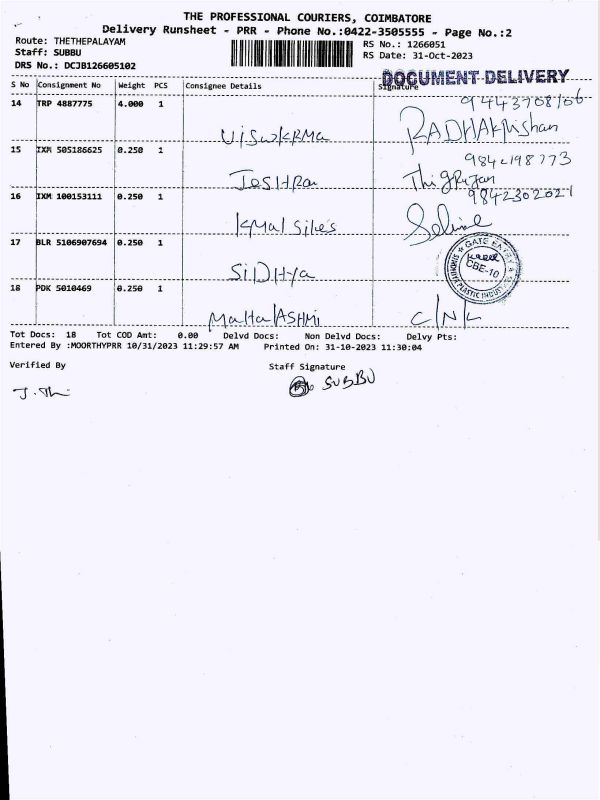 THE PROFESSIONAL COURIERS, COIMBATORE
Delivery Runsheet - PRR - Phone No.:0422-3505555 - Page No.:2
Route: THETHEPALAYAM
Staff: SUBBU
DRS No.: DCJB126605102
RS No.: 1266051
RS Date: 31-Oct-2023
DOCUMENT DELIVERY
S No Consignment No Weight PCS Consignee Details Signature
9443708106
14 TRP 4887775 4.000 1
Viswkrma RADHAKrishan
15 IXM 505186625 0.250 1
Jeshra
16 IXM 100153111 0.250 1
9842302021
Kmal silkes
17 BLR 5106907694 0.250 1
GATE ENTRY
CBE-10
PLASTIC INDUST
SiDHya
18 PDK 5010469 0.250 1
MahaLASHMi C/N/L
Tot Docs: 18 Tot COD Amt: 0.00 Delvd Docs: Non Delvd Docs: Delvy Pts:
Entered By :MOORTHYPRR 10/31/2023 11:29:57 AM Printed On: 31-10-2023 11:30:04
Verified By Staff Signature
SUBBU